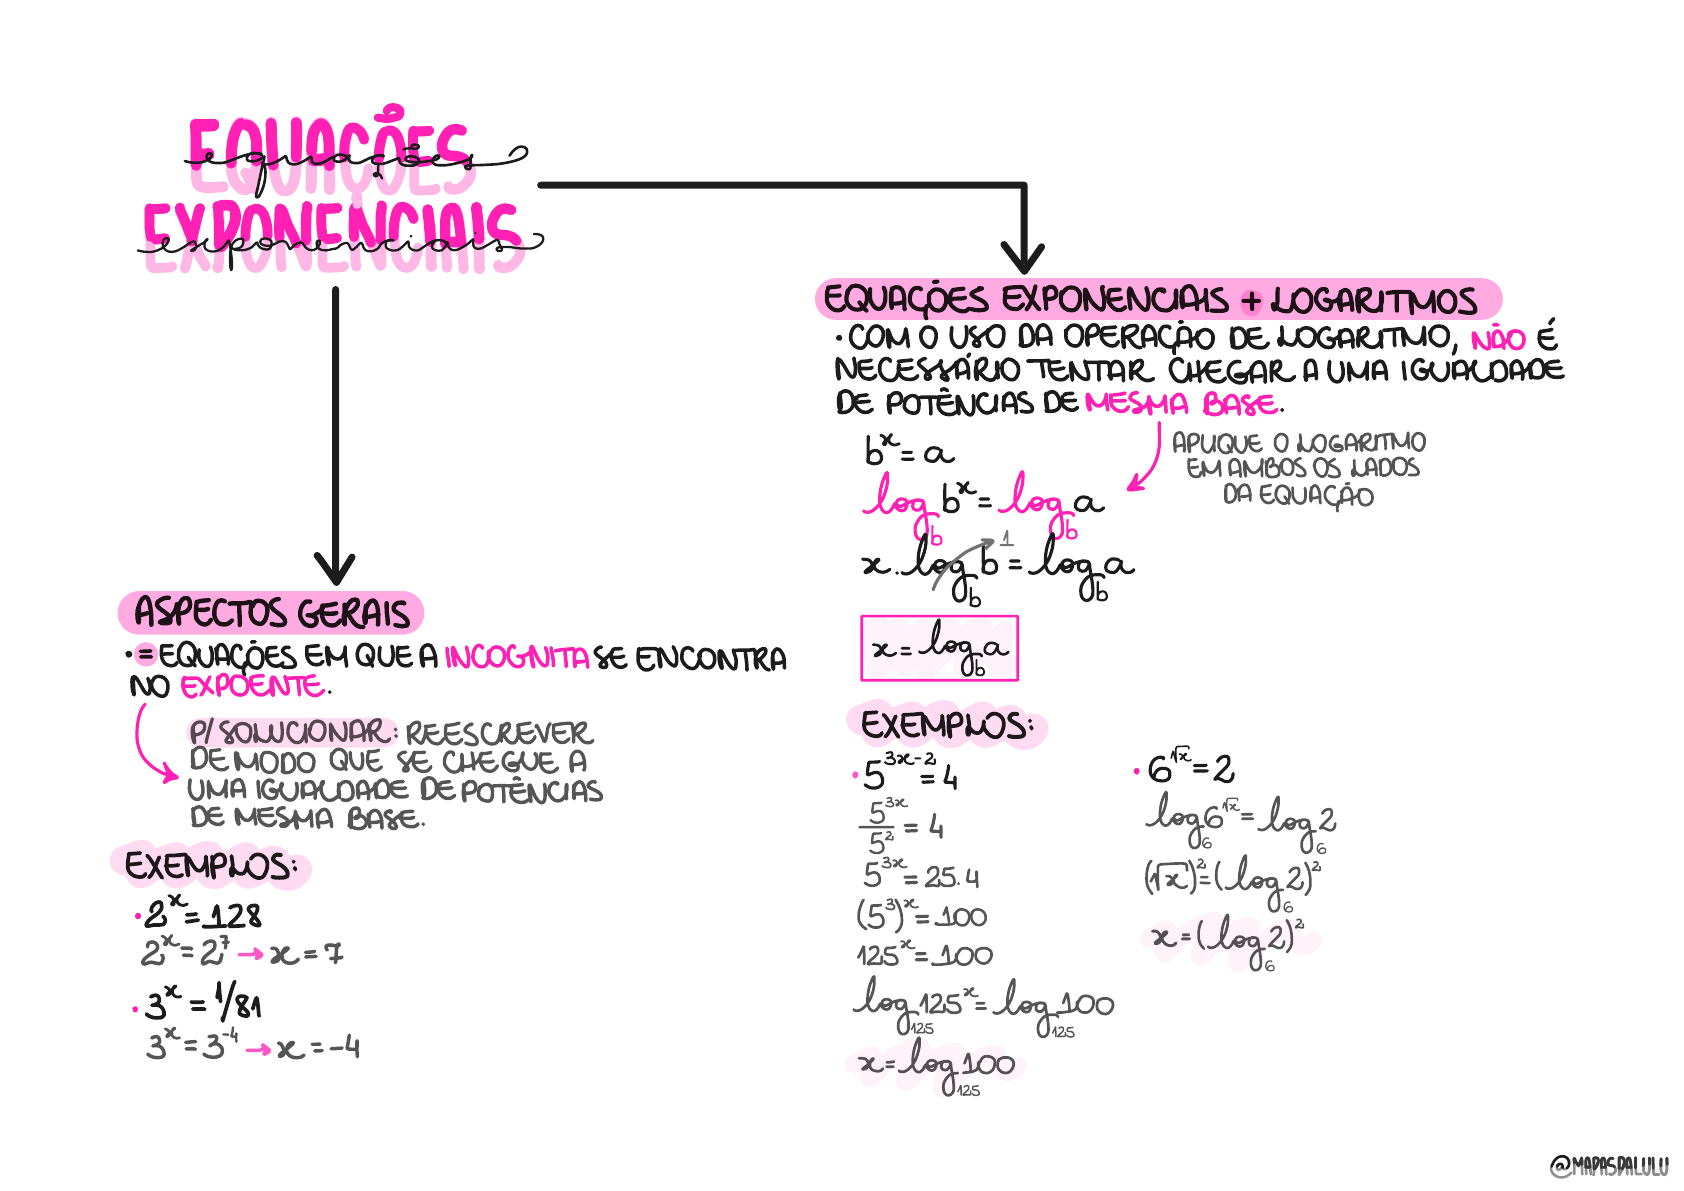 EQUAÇÕES
equações
EXPONENCIAIS
exponenciais
ASPECTOS GERAIS
• = EQUAÇÕES EM QUE A INCOGNITA SE ENCONTRA
NO EXPOENTE.
P/ SOLUCIONAR: REESCREVER
DE MODO QUE SE CHEGUE A
UMA IGUALDADE DE POTÊNCIAS
DE MESMA BASE.
EXEMPLOS:
• 2^x = 128
2^x = 2^7 → x = 7
• 3^x = 1/81
3^x = 3^-4 → x = -4
EQUAÇÕES EXPONENCIAIS + LOGARITMOS
• COM O USO DA OPERAÇÃO DE LOGARITMO, NÃO É
NECESSÁRIO TENTAR CHEGAR A UMA IGUALDADE
DE POTÊNCIAS DE MESMA BASE.
APLIQUE O LOGARITMO
EM AMBOS OS LADOS
DA EQUAÇÃO
b^x = a
log_b b^x = log_b a
1
x . log_b b = log_b a
x = log_b a
EXEMPLOS:
• 5^(3x-2) = 4
5^3x / 5^2 = 4
5^3x = 25.4
(5^3)^x = 100
125^x = 100
log_125 125^x = log_125 100
x = log_125 100
• 6^√x = 2
log_6 6^√x = log_6 2
(√x)^2 = (log_6 2)^2
x = (log_6 2)^2
@MAPASDALULU